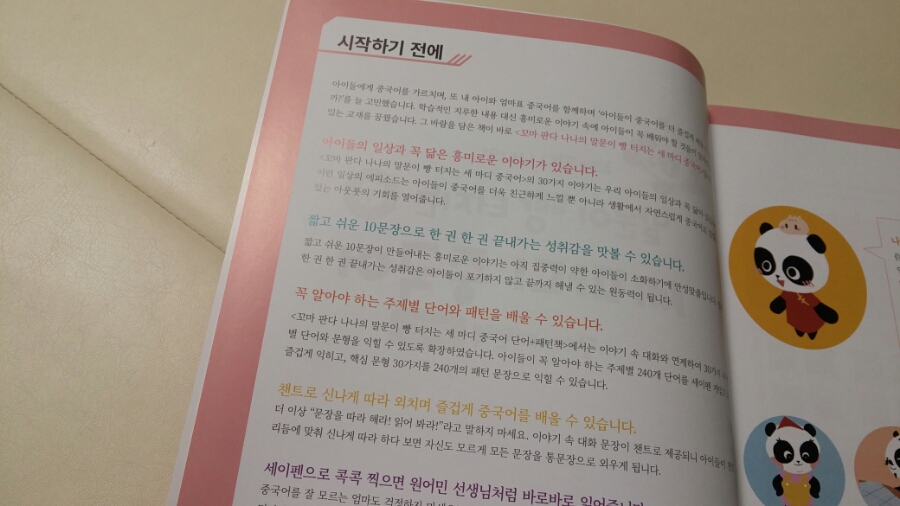 시작하기 전에
아이들에게 중국어를 가르치며, 또 내 아이와 엄마표 중국어를 함께하며 '아이들이 중국어를 더 즐겁게
까?'를 늘 고민했습니다. 학습적인 지루한 내용 대신 흥미로운 이야기 속에 아이들이 꼭 배워야 할 것들이
있는 교재를 꿈꿨습니다. 그 바람을 담은 책이 바로 <꼬마 판다 나나의 말문이 빵 터지는 세 마디 중국어>
아이들의 일상과 꼭 닮은 흥미로운 이야기가 있습니다.
<꼬마 판다 나나의 말문이 빵 터지는 세 마디 중국어>의 30가지 이야기는 우리 아이들의 일상과 꼭 닮아
이런 일상의 에피소드는 아이들이 중국어를 더욱 친근하게 느낄 뿐 아니라 생활에서 자연스럽게 중국어로
있는 아웃풋의 기회를 열어줍니다.
짧고 쉬운 10문장으로 한 권 한 권 끝내가는 성취감을 맛볼 수 있습니다.
짧고 쉬운 10문장이 만들어내는 흥미로운 이야기는 아직 집중력이 약한 아이들이 소화하기에 안성맞춤입니다.
한 권 한 권 끝내가는 성취감은 아이들이 포기하지 않고 끝까지 해낼 수 있는 원동력이 됩니다.
꼭 알아야 하는 주제별 단어와 패턴을 배울 수 있습니다.
<꼬마 판다 나나의 말문이 빵 터지는 세 마디 중국어 단어+패턴책>에서는 이야기 속 대화와 연계하여 30가지
별 단어와 문형을 익힐 수 있도록 확장하였습니다. 아이들이 꼭 알아야 하는 주제별 240개 단어를 세이펜
즐겁게 익히고, 핵심 문형 30가지를 240개의 패턴 문장으로 익힐 수 있습니다.
챈트로 신나게 따라 외치며 즐겁게 중국어를 배울 수 있습니다.
더 이상 "문장을 따라 해라! 읽어 봐라!"라고 말하지 마세요. 이야기 속 대화 문장이 챈트로 제공되니 아이들이
리듬에 맞춰 신나게 따라 하다 보면 자신도 모르게 모든 문장을 통문장으로 외우게 됩니다.
세이펜으로 콕콕 찍으면 원어민 선생님처럼 바로바로 읽어줍니다
중국어를 잘 모르는 엄마도 걱정하지 마세요